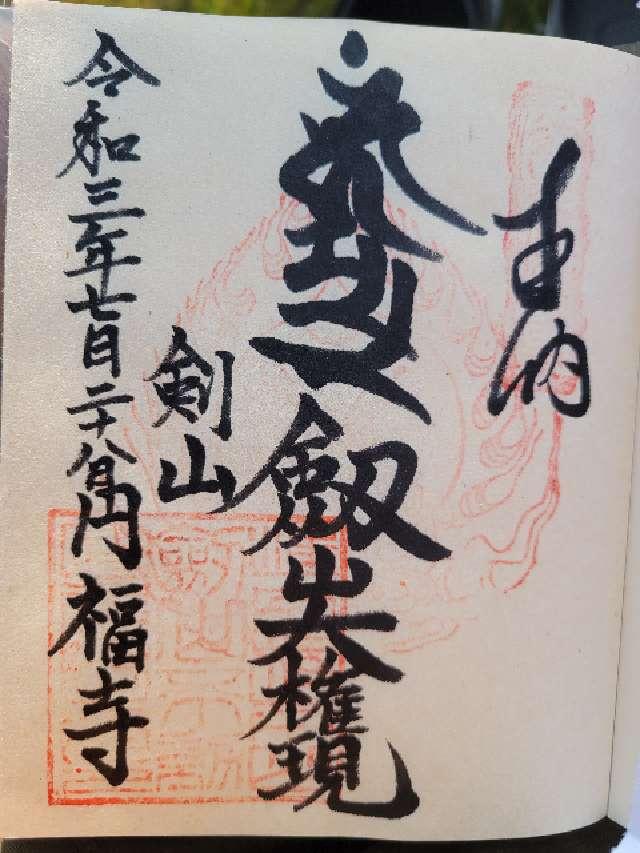 奉納
劔山大権現
剣山
令和三年七月二十八日 円福寺